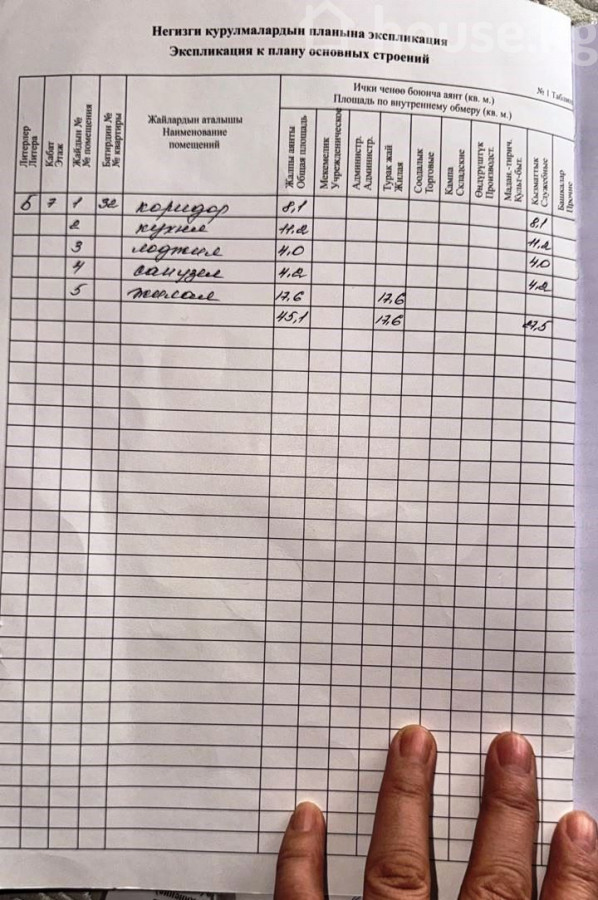 house.kg
Негизги курулмалардын планына экспликация
Экспликация к плану основных строений
№ 1 Таблица
Литерлер
Литера
Кабат
Этаж
Жайдын №
№ помещения
Батирдин №
№ квартиры
Жайлардын аталышы
Наименование
помещений
Ички ченөө боюнча аянт (кв. м.)
Площадь по внутреннему обмеру (кв. м.)
Жалпы аянты
Общая площадь
Мекемелик
Учрежденическое
Администр.
Администр.
Турак жай
Жилая
Соодалык
Торговые
Кампа
Складские
Өндүрүштүк
Производст.
Мадан.-тирич.
Культ-быт.
Кызматтык
Служебные
Башкалар
Прочие
Б 7 1 32 коридор 8,1 8,1
2 кухня 11.2 11.2
3 лоджия 4.0 4.0
4 санузел 4.2 4.2
5 жилая 17.6 17.6
45,1 17.6 27,5